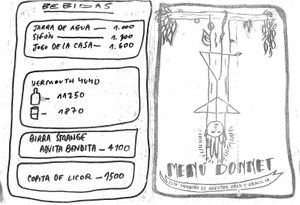 BEBIDAS
JARRA DE AGUA — 1.000
SIFÓN — 1.300
JUGO DE LA CASA — 1.600
VERMOUTH 4040
11250
1870
BIRRA STRANGE
AQUITA BENDITA — 4100
COPITA DE LICOR — 1500
MENÚ DONNET